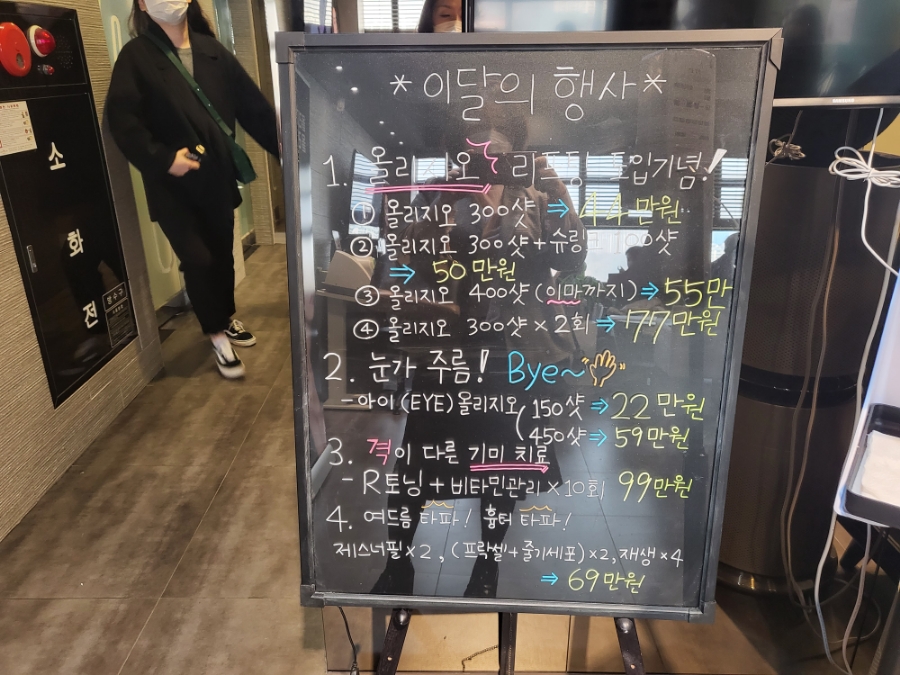 *이달의 행사*
1. 올리지오 리프팅 도입기념!
① 올리지오 300샷 ⇒ 44만원
② 올리지오 300샷+슈링크 100샷
⇒ 50만원
③ 올리지오 400샷 (이마까지) ⇒ 55만
④ 올리지오 300샷×2회 ⇒ 77만원
2. 눈가 주름! Bye~
-아이(EYE)올리지오 150샷 ⇒ 22만원
450샷 ⇒ 59만원
3. 격이 다른 기미 치료
- R토닝+비타민관리×10회 99만원
4. 여드름 타파! 흉터 타파!
제스너필×2, (프락셀+줄기세포)×2, 재생×4
⇒ 69만원
소
화
전